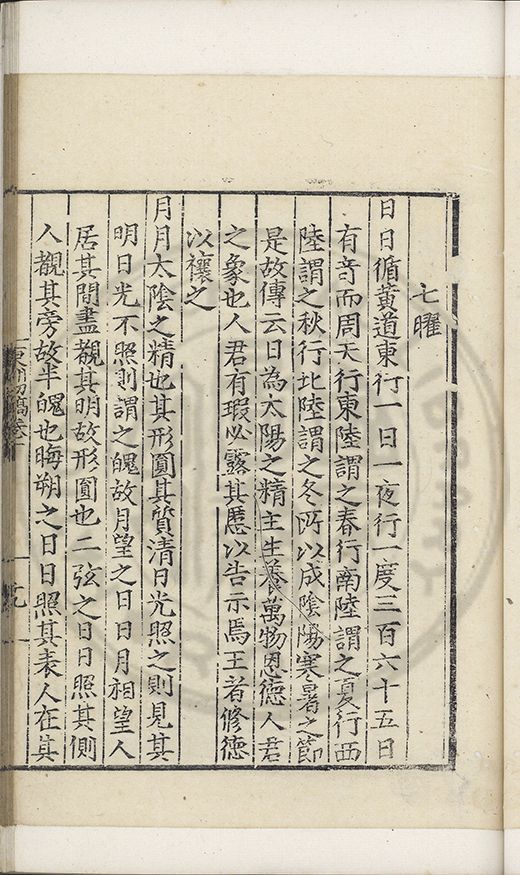 七曜
日日循黄道東行一日一夜行一度三百六十五日
有竒而周天行東陸謂之春行南陸謂之夏行西
陸謂之秋行北陸謂之冬所以成陰陽寒暑之節
是故傳云日為太陽之精主生養萬物恩德人君
之象也人君有瑕必露其慝以告示焉王者修德
以禳之
月月太陰之精也其形圓其質清日光照之則見其
明日光不照則謂之魄故月望之日日月相望人
居其間盡覩其明故形圓也二弦之日日照其側
人觀其旁故半魄也晦朔之日日照其表人在其